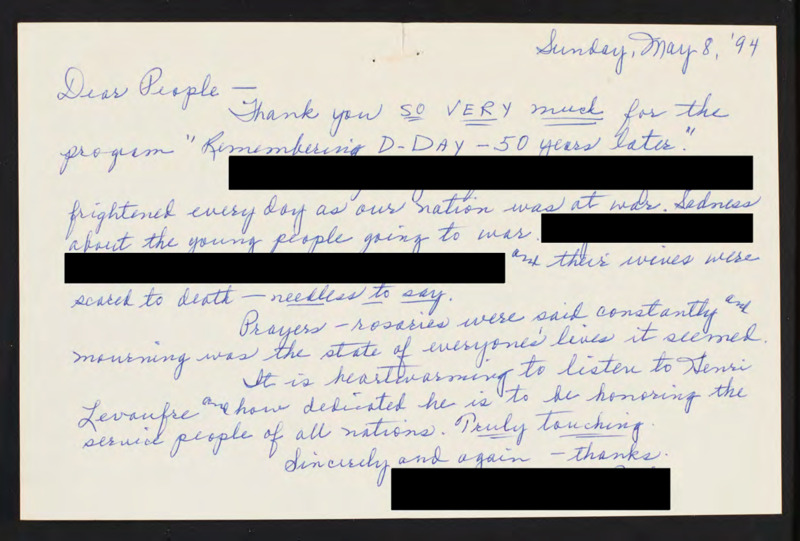 Sunday, May 8, '94
Dear People —
Thank you SO VERY much for the
program "Remembering D-DAY — 50 years later."
frightened every day as our nation was at war. Sadness
about the young people going to war.
and their wives were
scared to death — needless to say.
Prayers — rosaries were said constantly and
mourning was the state of everyones' lives it seemed.
It is heartwarming to listen to Henri
Levaufre and how dedicated he is to be honoring the
service people of all nations. Truly touching.
Sincerely and again — thanks.